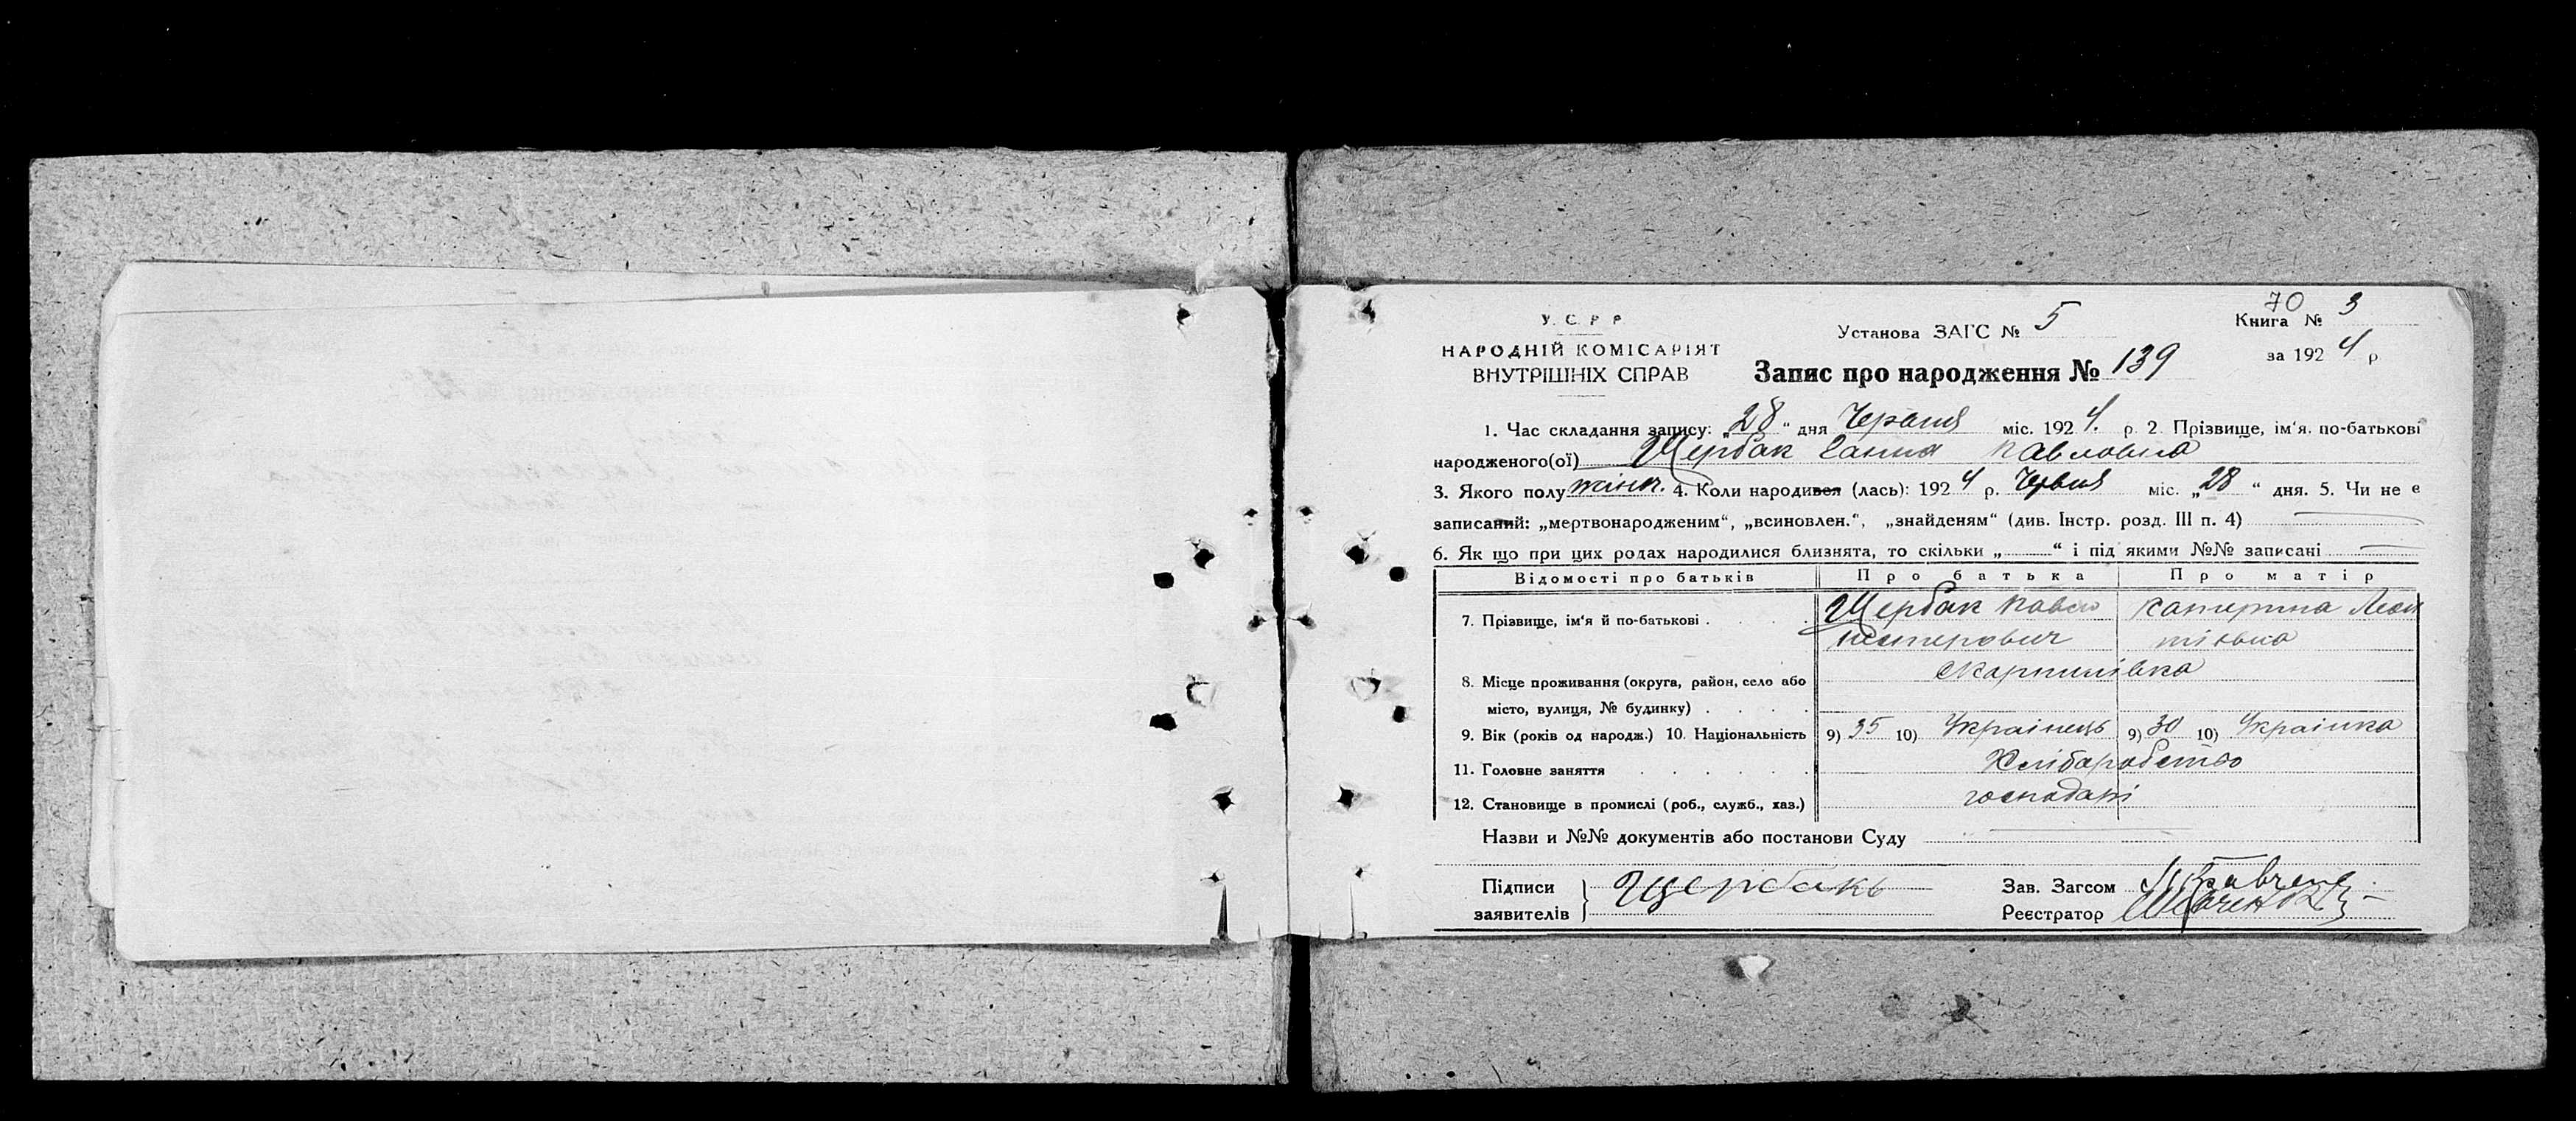 70
У. С. Р. Р.
НАРОДНІЙ КОМІСАРІЯТ
ВНУТРІШНІХ СПРАВ
Установа ЗАГС № 5
Книга № 3
за 1924 р.
Запис про народження № 139
1. Час складання запису: „28“ дня Червня міс. 1924. р. 2. Прізвище, ім'я, по-батькові
народженого(ої) Щербак Ганна Павловна
3. Якого полу жіноч. 4. Коли народився (лась): 1924 р. Червня міс. „28“ дня. 5. Чи не є
записаний: „мертвонародженим“, „всиновлен.“, „знайденям“ (див. Інстр. розд. III п. 4)
6. Як що при цих родах народилися близнята, то скільки „ “ і під якими №№ записані
Відомості про батьків Про батька Про матір
7. Прізвище, ім'я й по-батькові Щербак Павло Катерина Леон
нестерович тіївна
8. Місце проживання (округа, район, село або
місто, вулиця, № будинку)
9. Вік (років од народж.) 10. Національність 9) 35 10) Українець 9) 30 10) Українка
11. Головне заняття Хліборобство
12. Становище в промислі (роб., служб., хаз.) господарі
Назви и №№ документів або постанови Суду
Підписи
заявителів
Щербакъ
Зав. Загсом
Реєстратор